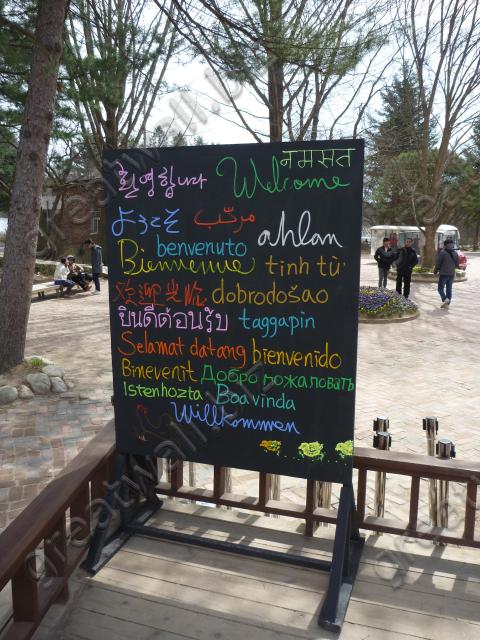 환영합니다 Welcome नमसत
ようこそ مرحّب ahlan
benvenuto
Bienvenue tinh tù'
欢迎光临 dobrodošao
ยินดีต้อนรับ taggapin
Selamat datang bienvenido
Bimevenit Добро пожаловать
Istenhozta Boavinda
Willkommen